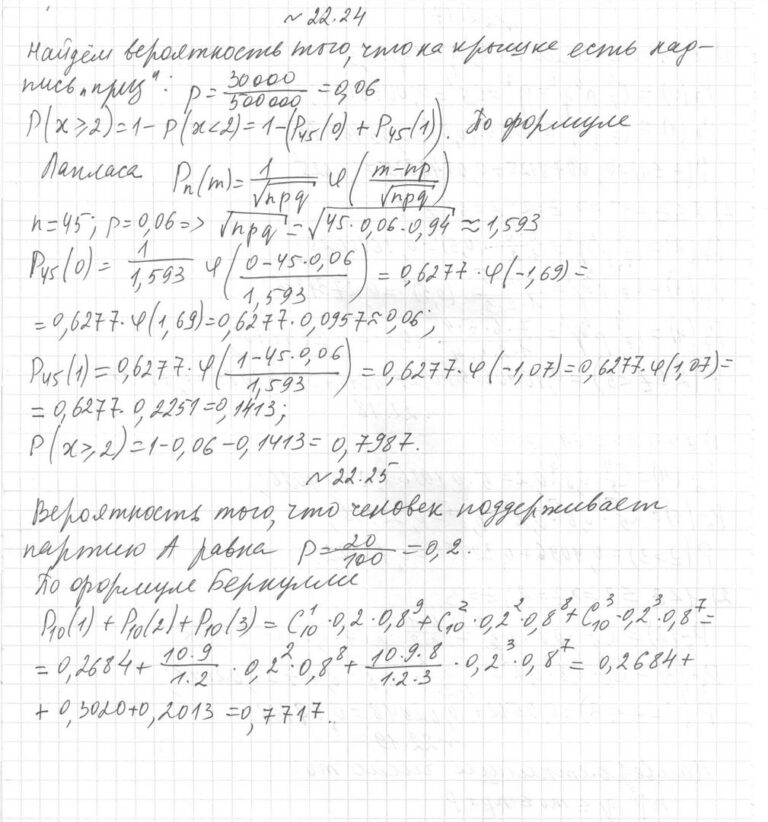 ~ 22.24
Найдём вероятность того, что на крышке есть над-
пись „приз": p = 30000/500000 = 0,06
P(x ≥ 2) = 1 - P(x < 2) = 1 - (P₄₅(0) + P₄₅(1)). По формуле
Лапласа Pₙ(m) = 1/√npq φ((m-np)/√npq)
n = 45; p = 0,06 => √npq = √45·0,06·0,94 ≈ 1,593
P₄₅(0) = 1/1,593 φ((0-45·0,06)/1,593) = 0,6277·φ(-1,69) =
= 0,6277·φ(1,69) = 0,6277·0,0957 ≈ 0,06;
P₄₅(1) = 0,6277·φ((1-45·0,06)/1,593) = 0,6277·φ(-1,07) = 0,6277·φ(1,07) =
= 0,6277·0,2251 = 0,1413;
P(x ≥ 2) = 1 - 0,06 - 0,1413 = 0,7987.
~ 22.25
Вероятность того, что человек поддерживает
партию А равна p = 20/100 = 0,2.
По формуле Бернулли
P₁₀(1) + P₁₀(2) + P₁₀(3) = C₁₀¹·0,2·0,8⁹ + C₁₀²·0,2²·0,8⁸ + C₁₀³·0,2³·0,8⁷ =
= 0,2684 + (10·9)/(1·2)·0,2²·0,8⁸ + (10·9·8)/(1·2·3)·0,2³·0,8⁷ = 0,2684 +
+ 0,3020 + 0,2013 = 0,7717.